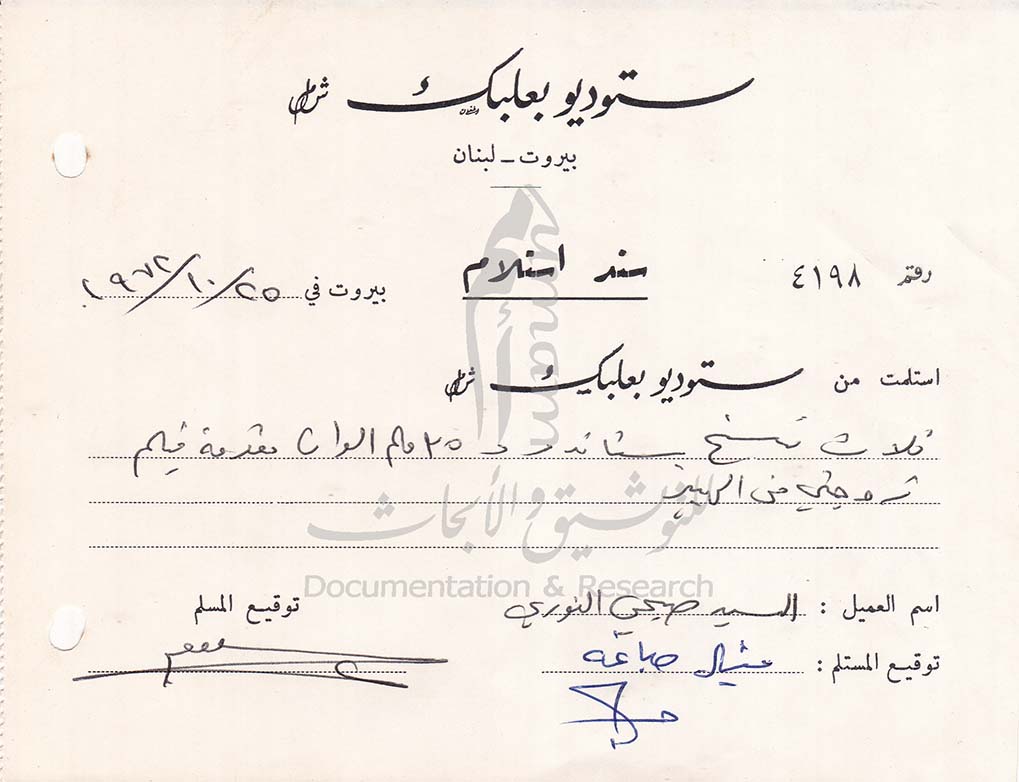 ستوديو بعلبك ش.م.ل
بيروت - لبنان
رقم ٤١٩٨
سند استلام
بيروت في ٢٥/١٠/١٩٧٢
استلمت من ستوديو بعلبك ش.م.ل
ثلاث نسخ ستاندرد ٣٥ ملم الوان مقدمة فيلم
زوجتي من الهيبيز
umam
للتوثيق والأبحاث
Documentation & Research
اسم العميل : السيد صبحي النوري
توقيع المسلم
توقيع المستلم : ميشال صباغة